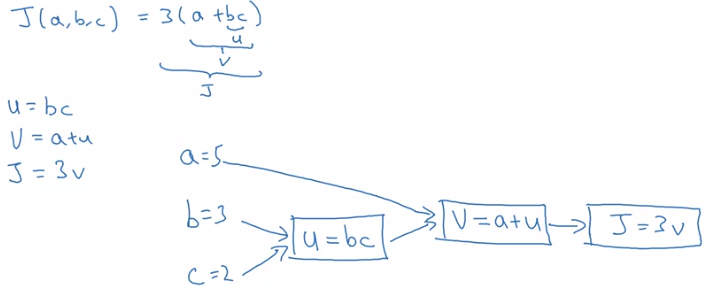 J(a,b,c) = 3(a+bc)
u
V
J
u = bc
V = a+u
J = 3v
a=5
b=3
u = bc
V = a+u
J = 3v
c=2